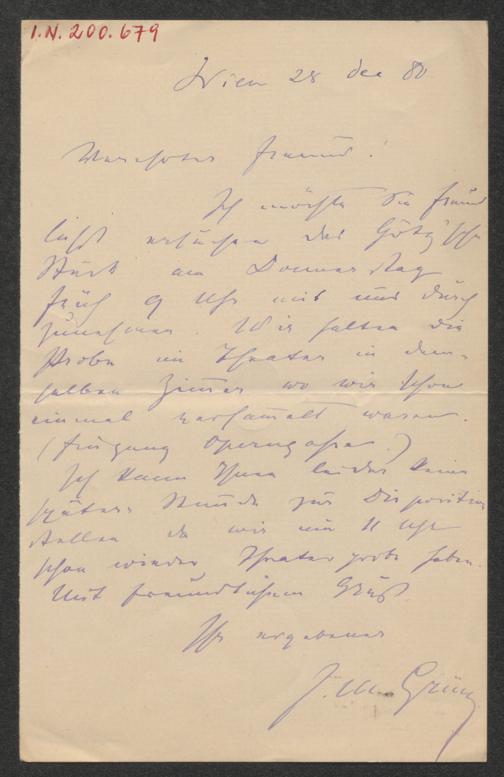 I.N. 200.679
Wien 28 dec 80
Verehrter Freund!
Ich möchte Sie freund
lichst ersuchen das Götz'sche
Stück am Donnerstag
früh 9 Uhr mit uns durch
zunehmen. Wir halten die
Probe im Theater in dem-
selben Zimmer wo wir schon
einmal versammelt waren.
(Eingang Operngasse.)
Ich kann Ihnen leider keine
spätere Stunde zur Disposition
stellen da wir um 11 Uhr
schon wieder Theaterprobe haben.
Mit freundlichem Gruß
Ihr ergebener
J. M. Grün